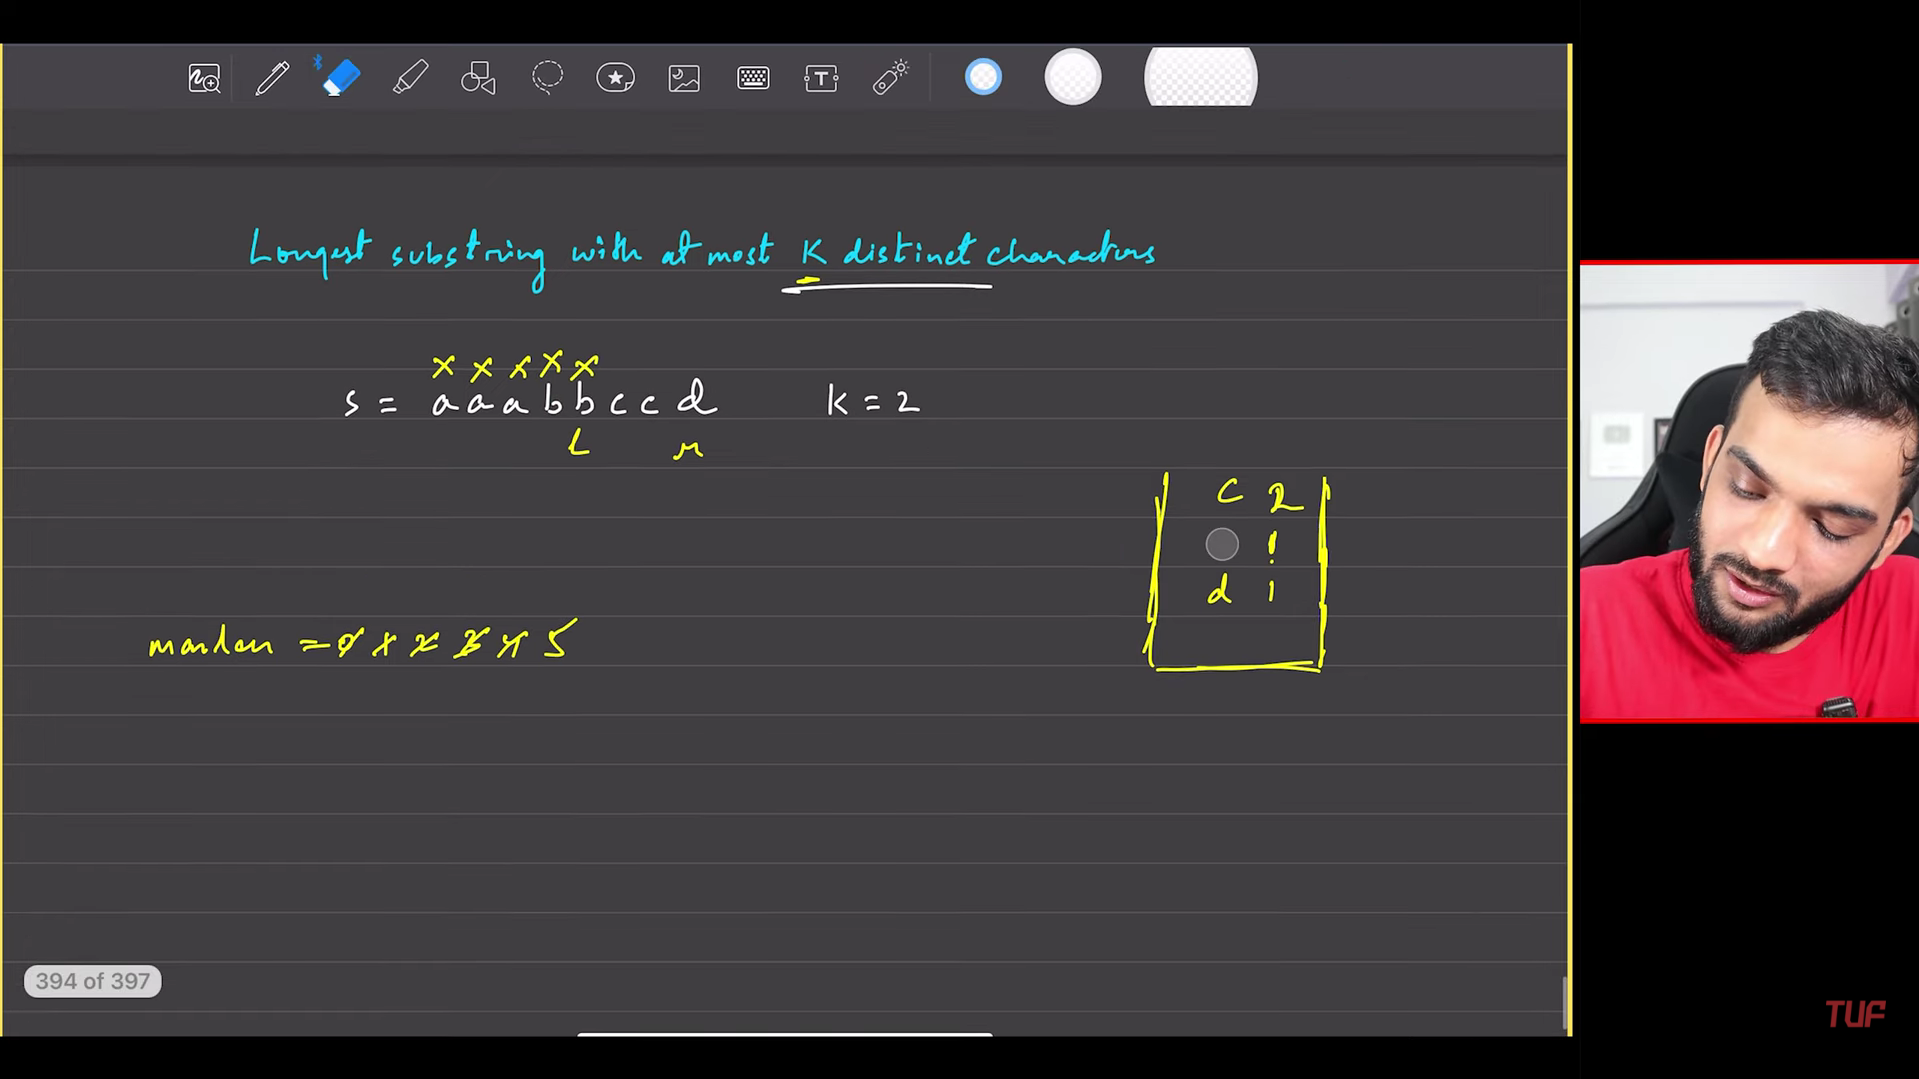 Longest substring with at most K distinct characters
x x x x x
s = a a a b b c c d    k = 2
l    r
c 2
1
d 1
maxlen = 0 1 2 3 4 5
394 of 397
TUF